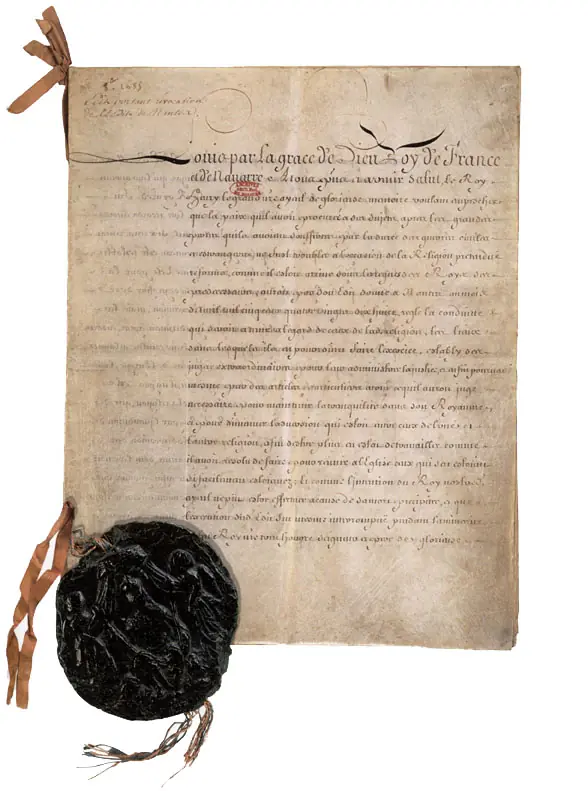 8.bre 1685
Edit portant revocation
de l'Edit de Nantes.
Louis par la grace de Dieu Roy de France
et de Navarre A tous presens et a venir salut. Le Roy
Henry le grand nre ayeul de glorieuse memoire voulant empescher
que la paix quil avoit procurée a ses sujets aprés les grandes
pertes quils avoient souffertes par la durée des guerres civiles
et estrangeres, ne fust troublée a loccasion de la Religion pretendue
reformée, comme il estoit arrivé sous les regnes des Roys ses
predecesseurs, auroit par son Edit donné a Nantes au mois
mil cinq cens quatre vingts dix huict, reglé la conduitte
qui seroit a tenir a legard de ceux de lad. religion, les lieux
dans lesquels ils en pourroient faire lexercice, estably des
juges extraordinaires pour leur administrer la justice, et enfin pourveu
mesme par des articles particuliers a tout ce quil auroit jugé
necessaire pour maintenir la tranquilité dans son Royaume
et pour diminuer laversion qui estoit entre ceux de lune et
lautre religion, afin destre plus en estat de travailler comme
il avoit resolu de faire pour reunir a lEglise ceux qui sen estoient
si facilement esloignez; Et comme lintention du Roy nostred.
ayeul ne put estre effectuée a cause de sa mort precipitée, et que
lexecution dud. Edit fut mesme interrompue pendant la minorité
du feu Roy nre tres honoré seigneur et pere de glorieuse